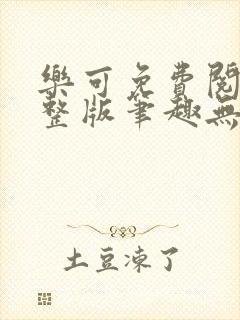 樂可免費閱
整版筆趣無
土豆凍了